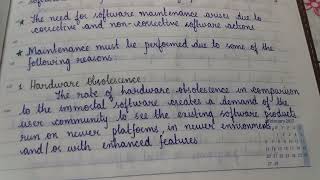 * The need for software maintenance arises due to
corrective and non-corrective software actions
* Maintenance must be performed due to some of the
following reasons:
1. Hardware Obsolescence:
The rate of hardware obsolescence in comparison
to the immortal software creates a demand of the
user community to see the existing software products
run on newer platforms, in newer environment
and/or with enhanced features